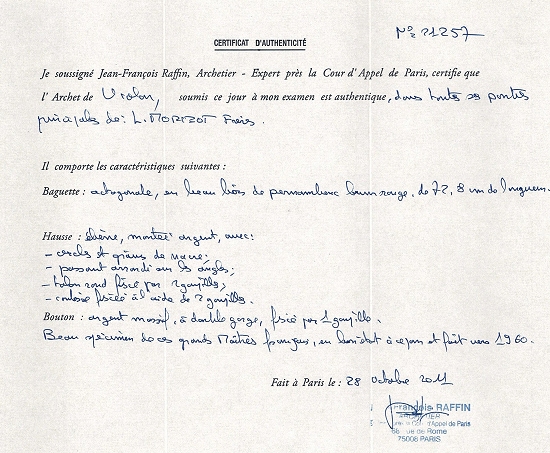 N° 21257
CERTIFICAT D'AUTHENTICITÉ
Je soussigné Jean-François Raffin, Archetier - Expert près la Cour d'Appel de Paris, certifie que
l' Archet de Violon, soumis ce jour à mon examen est authentique, dans toutes ses parties
principales de: L. MORIZOT Frères.
Il comporte les caractéristiques suivantes :
Baguette : octogonale, en beau bois de pernambouc brun rouge, de 72,8 cm de longueur.
Hausse : ébène, montée argent, avec:
- cercles et grains de nacre;
- passant arrondi sur les angles;
- talon rond fixé par 2 goupilles;
- coulisse fixée à l'aide de 2 goupilles.
Bouton : argent massif, à double gorge, fixé par 1 goupille.
Beau spécimen de ces grands Maîtres français, en bon état à ce jour et fait vers 1960.
Fait à Paris le : 28 octobre 2011
François RAFFIN
d'Appel de Paris
rue de Rome
75008 PARIS